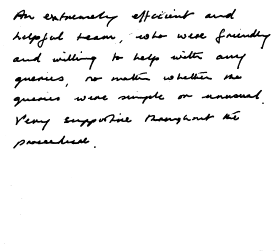 An extremely efficient and
helpful team, who were friendly
and willing to help with any
queries, no matter whether the
queries were simple or unusual.
Very supportive throughout the
procedure.